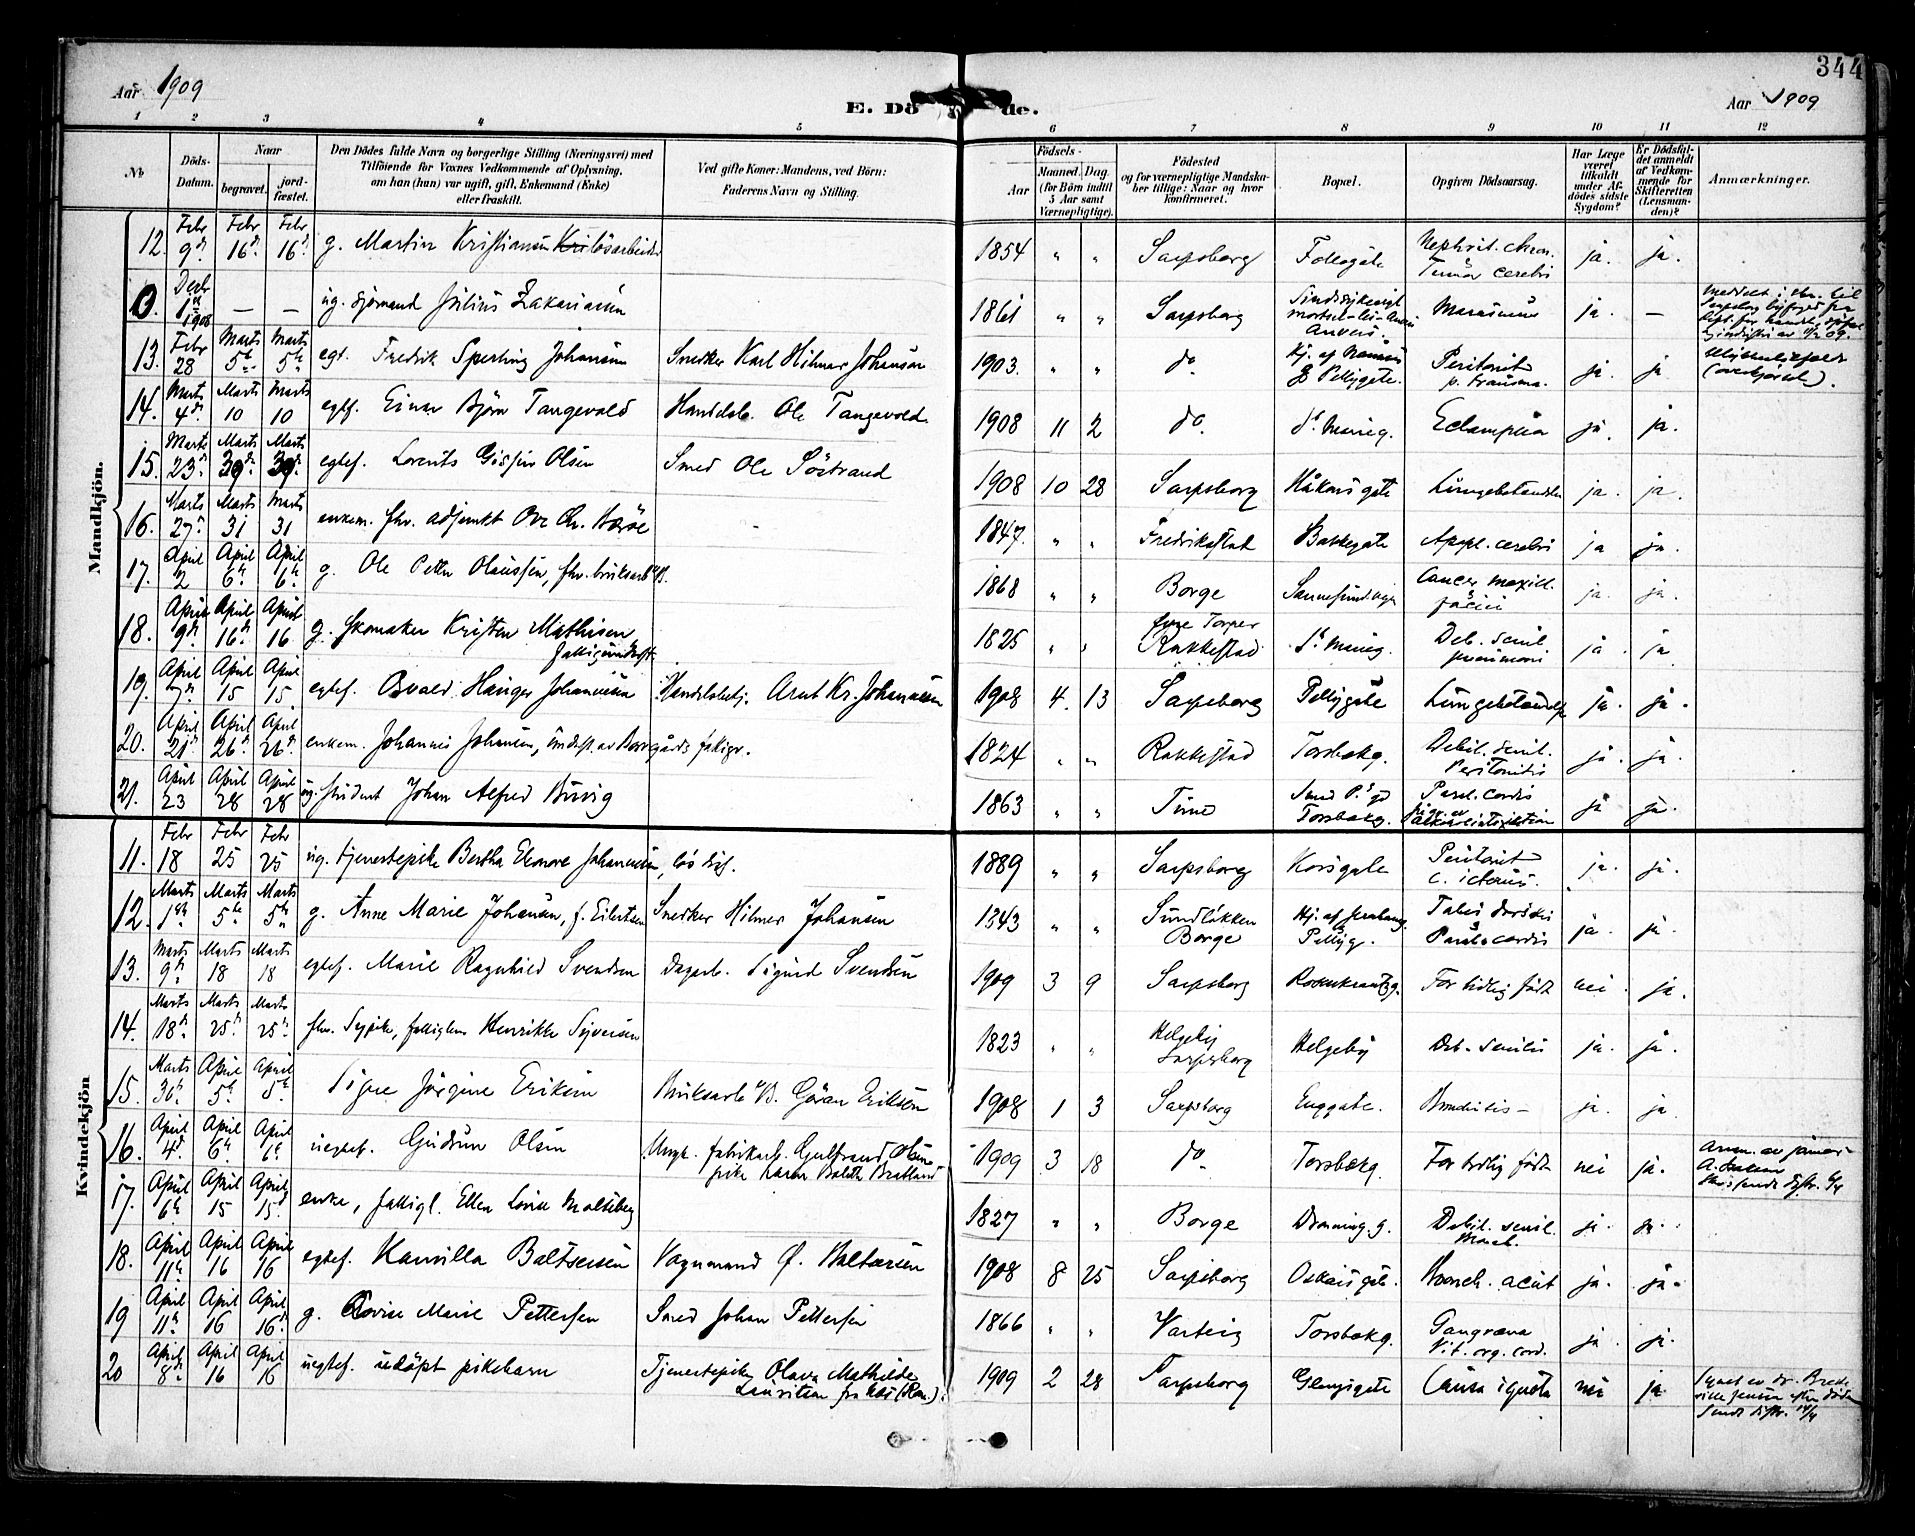 344
Aar 1909
E. Dö de.
Aar 1909
1 2 3 4 5 6 7 8 9 10 11 12
No
Döds-Datum.
Naar
begravet.
jord-fæstet.
Den Dödes fulde Navn og borgerlige Stilling (Næringsvei) med
Tilföiende for Voxnes Vedkommende af Oplysning,
om han (hun) var ugift, gift, Enkemand (Enke)
eller fraskilt.
Ved gifte Koner: Mandens, ved Börn:
Faderens Navn og Stilling.
Födsels-
Aar
Maaned. Dag.
(for Börn indtil
5 Aar samt
Værnepligtige).
Födested
og for værnepligtige Mandska-
ber tillige: Naar og hvor
konfirmeret.
Bopæl.
Opgiven Dödsaarsag.
Har Læge
været
tilkaldt
under Af-
dödes sidste
Sygdom?
Er Dödsfal-
det anmeldt
af Vedkom-
mende for
Skifteretten
(Lensman-
den)?
Anmærkninger.
Mandkjön.
12. Febr 9de Febr 16de Febr 16de g. Martin Kristiansen Kri lösarbeider 1854 " " Sarpsborg Follogate Nephrit. chron. Tumor cerebri ja. ja.
0. Decbr 1ste 1908 — — ug. Sjömand Julius Zakariasen 1861 " " Sarpsborg Marasmus ja. —
13. Febr 28 Marts 5te Marts 5te egt. Fredrik Sperling Johansen Snedker Karl Hilmar Johansen 1903. " " do Pellygate. Peritonit p. trauma. ja. ja (overkjörsel).
14. Marts 4de Marts 10 Marts 10 egtef. Einar Björn Tangevold Handelsb. Ole Tangevold 1908 11 2 do. St. Marieg. Eclampsia ja. ja.
15. Marts 23de Marts 30de Marts 30de egtef. Lorents Olsen Smed Ole Söstrand 1908 10 28 Sarpsborg Håkonsgate Lungebetændelse ja. ja.
16. Marts 27de Marts 31 Marts 31 enkem. fhv. adjunkt Ove Chr. 1847. " " Fredrikstad Bakkegate Apopl. cerebri ja ja.
17. April 2 April 6te April 6te g. Ole Petter Olaussen, fhv. bruksarb. v/B. 1868 " " Borge Sannesundveien Cancer maxill. faciei ja. ja.
18. April 9de April 16de April 16 g. Skomaker Kristen Mathisen, fattigunderst. 1825 " " Torper Rakkestad St. Marieg. Deb. senil. pneumoni ja. ja
19. April 7de April 15 April 15. egtef. Osvald Hauger Johannesen Handelsbetj. Arnt Kr. Johannesen 1908 4. 13 Sarpsborg Pellygate Lungebetændelse ja. ja.
20. April 21de April 26de April 26de enkem. Johannes Johansen, underst. av Borregårds fattigv. 1824 " " Rakkestad Torsbækg. Debil. senil. Peritonitis ja. ja.
21. April 23 April 28 April 28 ug. student Johan Alfred Buvig 1863 " " Time Torsbækg. Paral. cordis ja ja.
Kvindekjön
11. Febr 18 Febr 25 Febr 25 ug. tjenestepike Bertha Elenore Johannesen, 1889 " " Sarpsborg Korsgate Peritonit c. icterus. ja. ja.
12. Marts 1ste Marts 5te Marts 5te g. Anne Marie Johansen, f. Eilertsen Snedker Hilmar Johansen 1843 " " Sundlökken Borge Pellyg. Tabes dorsalis Paral. cordis ja. ja.
13. Marts 9de Marts 18 Marts 18 egtef. Marie Ragnhild Svendsen Dagarb. Sigurd Svendsen 1909 3 9 Sarpsborg Rosenkrantzg. For tidlig född nei. ja.
14. Marts 18de Marts 25de Marts 25de fhv. Sypike, fattiglem Henrikke Syversen 1823 " " Helgeby Sarpsborg Helgeby Deb. senilis ja. ja.
15. Marts 30te April 5te April 5te Signe Jörgine Eriksen Bruksarb. v/B. Göran Eriksen 1908 1 3 Sarpsborg Enggate. Bronchitis ja. ja
16. April 4de April 6te April 6te uegtef. Gudrun Olsen Ungk. fabrikarb. Gulbrand Olsen pike Karen Bratland 1909 3 18 do. Torsbækg. For tidlig född nei ja.
17. April 6te April 15 April 15de enke, fattigl. Ellen Lovise Molteberg 1827 " " Borge Dronning.g. Debil. senil. ja. ja.
18. April 11te April 16 April 16 egtef. Kamilla Baltsersen Vognmand O. Baltsersen 1908 8 25 Sarpsborg Oskarsgate. Bronch. acut ja. ja.
19 April 11te April 16 April 16de g. Lovise Marie Pettersen Smed Johan Pettersen 1866 " " Varteig Torsbækg. Gangræna Vit. org. cord. ja. ja.
20 April 8de April 16 April 16 uegtef. udöpt pikebarn Tjenestepike Olava Mathilde Lauritsen fra 1909 2 28 Sarpsborg Glengsgate Causa ignota nei ja